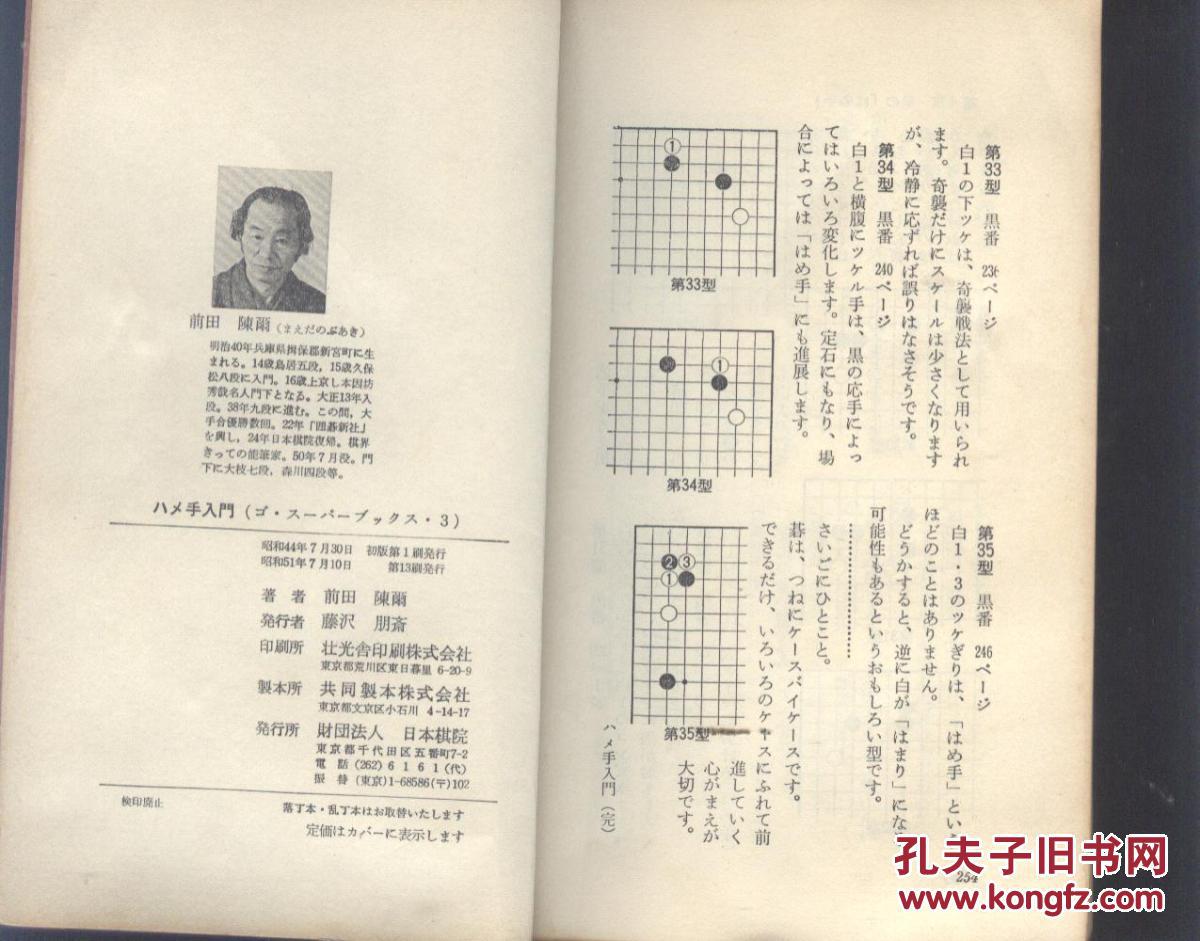 第33型　黒番　236ページ
白1の下ツケは、奇襲戦法として用いられ
ます。奇襲だけにスケールは少さくなります
が、冷静に応ずれば誤りはなさそうです。
第34型　黒番　240ページ
白1と横腹にツケル手は、黒の応手によっ
てはいろいろ変化します。定石にもなり、場
合によっては「はめ手」にも進展します。
①
第33型
①
第34型
第35型　黒番　246ページ
白1・3のツケぎりは、「はめ手」という
ほどのことはありません。
どうかすると、逆に白が「はまり」になる
可能性もあるというおもしろい型です。
さいごにひとこと。
碁は、つねにケースバイケースです。
できるだけ、いろいろのケースにふれて前
進していく
心がまえが
大切です。
❷③
①
第35型
ハメ手入門（完）
254
前田　陳爾（まえだのぶあき）
明治40年兵庫県揖保郡新宮町に生
まれる。14歳鳥居五段，15歳久保
松八段に入門。16歳上京し本因坊
秀哉名人門下となる。大正13年入
段。38年九段に進む。この間，大
手合優勝数回。22年「囲碁新社」
を興し，24年日本棋院復帰。棋界
きっての能筆家。50年7月没。門
下に大枝七段，森川四段等。
ハメ手入門（ゴ・スーパーブックス・3）
昭和44年7月30日　初版第1刷発行
昭和51年7月10日　第13刷発行
著　者　前田　陳爾
発行者　藤沢　朋斎
印刷所　壮光舎印刷株式会社
東京都荒川区東日暮里 6-20-9
製本所　共同製本株式会社
東京都文京区小石川 4-14-17
発行所　財団法人　日本棋院
東京都千代田区五番町7-2
電　話 (262) 6 1 6 1 (代)
振　替 (東京)1-68586(〒)102
検印廃止
落丁本・乱丁本はお取替いたします
定価はカバーに表示します
孔夫子旧书网
www.kongfz.com